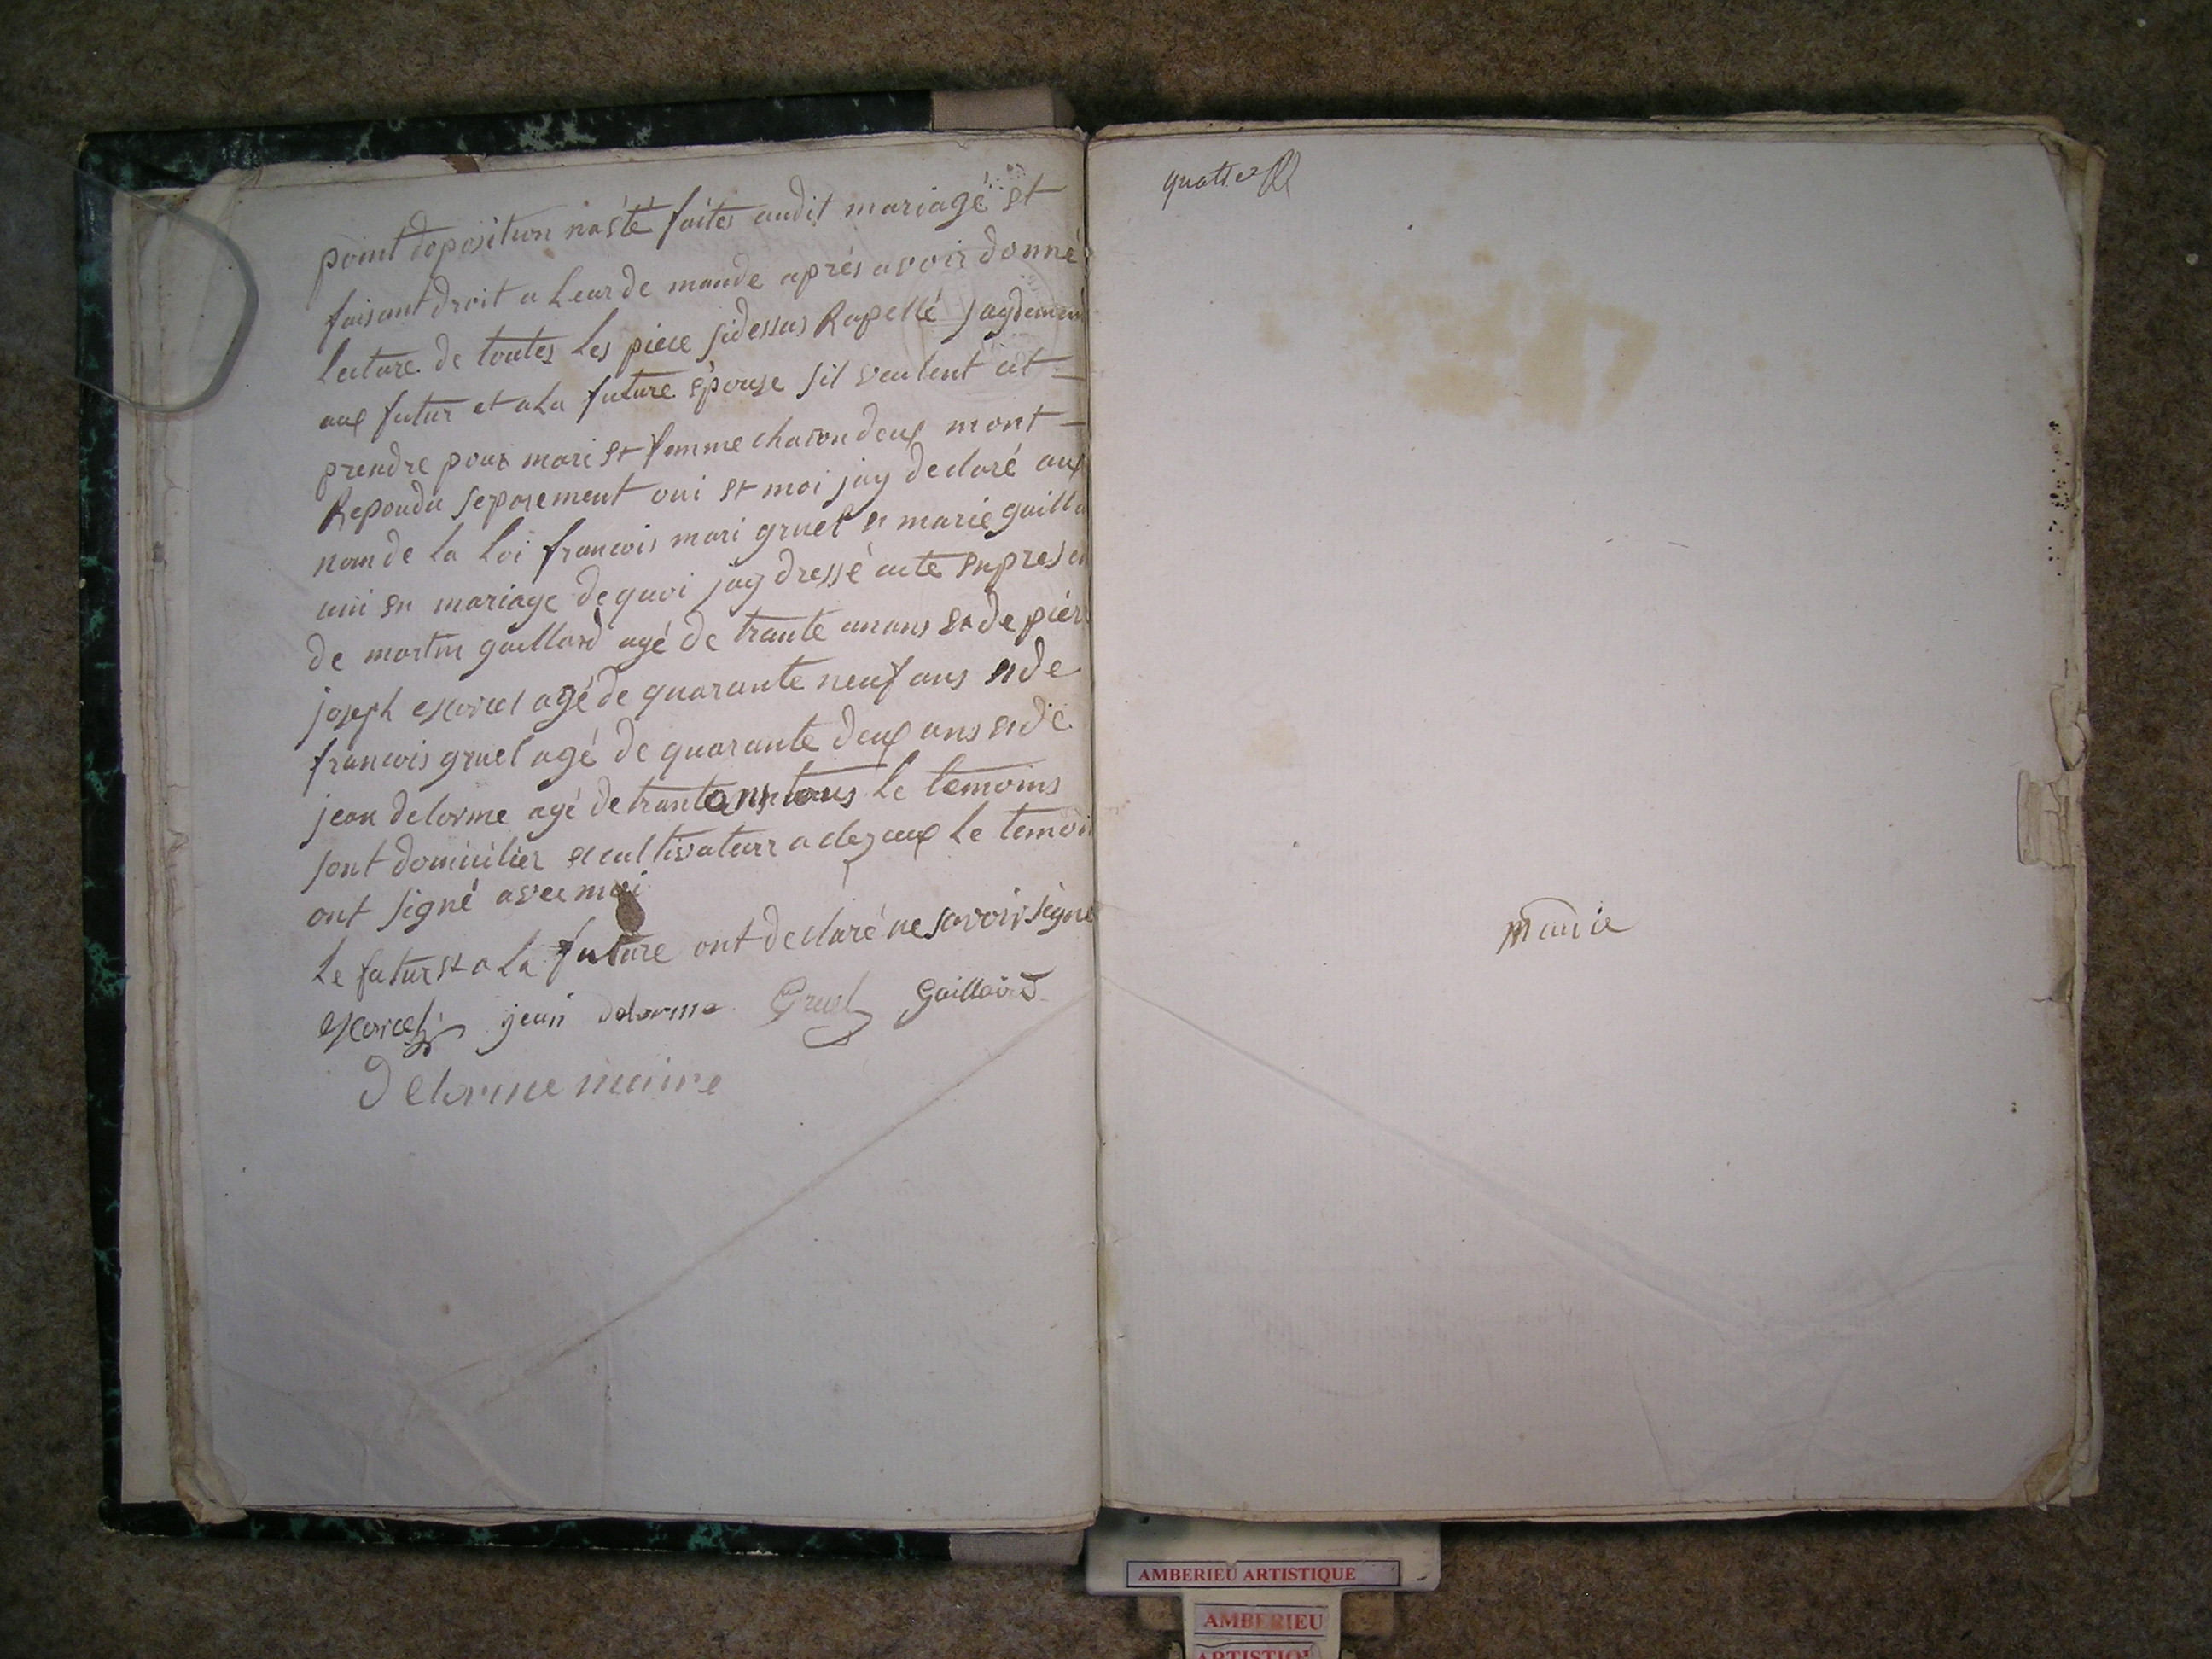 point doposition naété faites audit mariagé et
faisant droit a Leur de mande aprés avoir donné
Lecture de toutes Les piece sidessus Rapellé jay demen
aux futur et ala future épouse sil veulent cit
prendre pour mari et femme chacon deux mont
Repondu separement oui et moi jay declaré aux
nom de La Loi francois mari gruel et marie gailla
uni en mariage de quoi jay dressé acte en presen
de martin gaillard agé de trante un ans et de piér
joseph agé de quarante neuf ans et de
francois gruel agé de quarante deux ans et de
jean delorme agé de trante ans tous Le temoins
sont domicilier et cultivateur a Le temoin
ont signé avec moi
Le futur et a La future ont declaré ne savoir signé
jean delorme Gruel Gaillard
Delorme maire
quatre
AMBERIEU ARTISTIQUE
AMBERIEU
ARTISTIQU